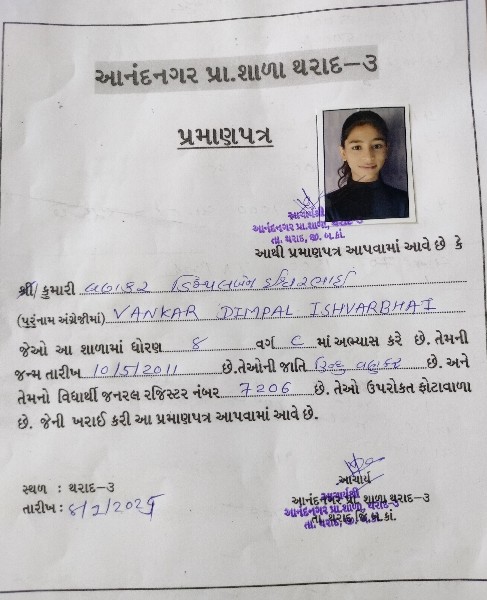 આનંદનગર પ્રા.શાળા થરાદ-૩
પ્રમાણપત્ર
આચાર્યશ્રી
આનંદનગર પ્રા.શાળા, થરાદ-૩
તા. થરાદ, જી. બ.કાં.
આથી પ્રમાણપત્ર આપવામાં આવે છે કે
શ્રી/કુમારી વણકર ડિમ્પલબેન ઇશ્વરભાઇ
(પુરૂંનામ અંગ્રેજીમાં) VANKAR DIMPAL ISHVARBHAI
જેઓ આ શાળામાં ધોરણ 8 વર્ગ C માં અભ્યાસ કરે છે. તેમની
જન્મ તારીખ 10/5/2011 છે.તેઓની જાતિ હિન્દુ વણકર છે. અને
તેમનો વિધાર્થી જનરલ રજિસ્ટર નંબર 7206 છે. તેઓ ઉપરોકત ફોટાવાળા
છે. જેની ખરાઈ કરી આ પ્રમાણપત્ર આપવામાં આવે છે.
સ્થળ : થરાદ-૩
તારીખ: 8/1/2025
આચાર્ય
આચાર્યશ્રી
આનંદનગર પ્રા. શાળા થરાદ-૩
આનંદનગર પ્રા.શાળા, થરાદ-૩
તા. થરાદ જિ.બ.કાં.
તા. થરાદ, જી. બ.કાં.